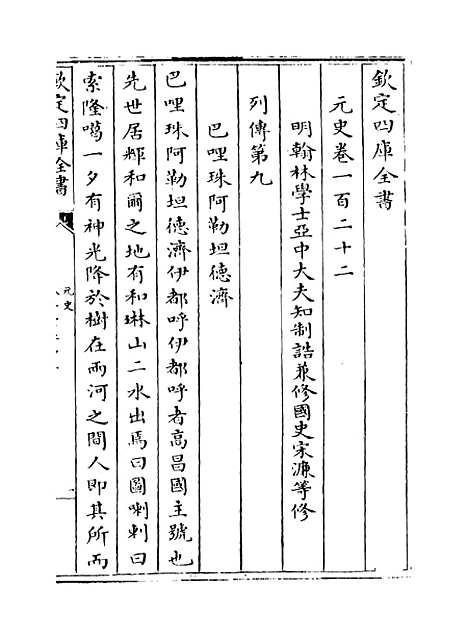 欽定四庫全書
元史卷一百二十二
明翰林學士亞中大夫知制誥兼修國史宋濂等修
列傳第九
巴哩珠阿勒坦德濟
巴哩珠阿勒坦德濟伊都呼伊都呼者髙昌國主號也
先世居輝和爾之地有和琳山二水出焉曰圖喇剌曰
索隆噶一夕有神光降於樹在兩河之間人即其所而
欽定四庫全書
元史